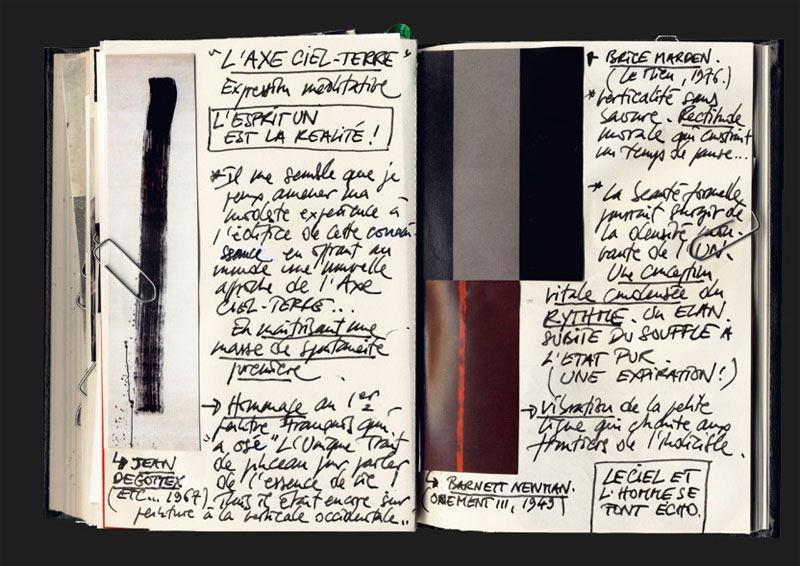 "L'AXE CIEL-TERRE"
Expression méditative
L'ESPRIT UN
EST LA REALITÉ !
* Il me semble que je
peux amener ma
modeste expérience à
l'édifice de cette connai-
ssance en offrant au
monde une nouvelle
approche de l'Axe
CIEL-TERRE...
En maîtrisant une
masse de spontanéité
première.
→ Hommage au 1er
peintre français qui
a osé "L'Unique Trait
de pinceau pour parler
de l'essence de vie !
Mais il était encore sur
peinture à la verticale occidentale..
↳ JEAN
DEGOTTEX
(ETC... 1967)
BRICE MARDEN.
(Le Mien, 1976.)
* Verticalité sans
saveur. Rectitude
morale qui construit
un Temps de pause...
* La Beauté formelle
pourrait surgir de
la densité
de l'UN.
Une conception
vitale condensée du
RYTHME. Un ELAN
SUBITE DU SOUFFLE A
L'ETAT PUR.
(UNE EXPIRATION!)
→ Vibration de la petite
ligne qui chante aux
frontières de l'indicible.
↳ BARNETT NEWMAN.
(ONEMENT III, 1949)
LE CIEL ET
L'HOMME SE
FONT ECHO.